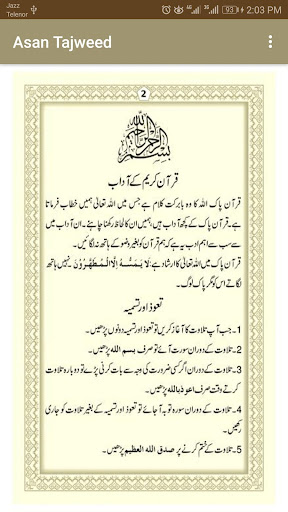 Jazz
Telenor
4G
4G
93
2:03 PM
Asan Tajweed
2
بسم الله الرحمن الرحيم
قرآن کریم کے آداب
قرآن پاک اللہ کا وہ بابرکت کلام ہے جس میں اللہ تعالیٰ ہمیں خطاب فرماتا
ہے۔ قرآن پاک کے کچھ آداب ہیں، ہمیں ان کا لحاظ رکھنا چاہئے۔ ان آداب میں
سے سب سے اہم ادب یہ ہے کہ ہم قرآن کو بغیر وضو کے ہاتھ نہ لگائیں۔
قرآن پاک میں اللہ تعالیٰ کا ارشاد ہے: لَا يَمَسُّهُ إِلَّا الْمُطَهَّرُوْنَ نہیں ہاتھ
لگاتے اس کو مگر پاک لوگ۔
تعوذ اور تسمیہ
1۔ جب آپ تلاوت کا آغاز کریں تو تعوذ اور تسمیہ دونوں پڑھیں۔
2۔ تلاوت کے دوران سورت آئے تو صرف بسم اللہ پڑھیں۔
3۔ تلاوت کے دوران اگر کسی ضرورت کی وجہ سے بات کرنی پڑے تو دوبارہ تلاوت
کرتے وقت صرف اعوذ باللہ پڑھیں۔
4۔ تلاوت کے دوران سورہ توبہ آ جائے تو تعوذ اور تسمیہ کے بغیر تلاوت کو جاری
رکھیں۔
5۔ تلاوت کے ختم کرنے پر صدق الله العظيم پڑھیں۔